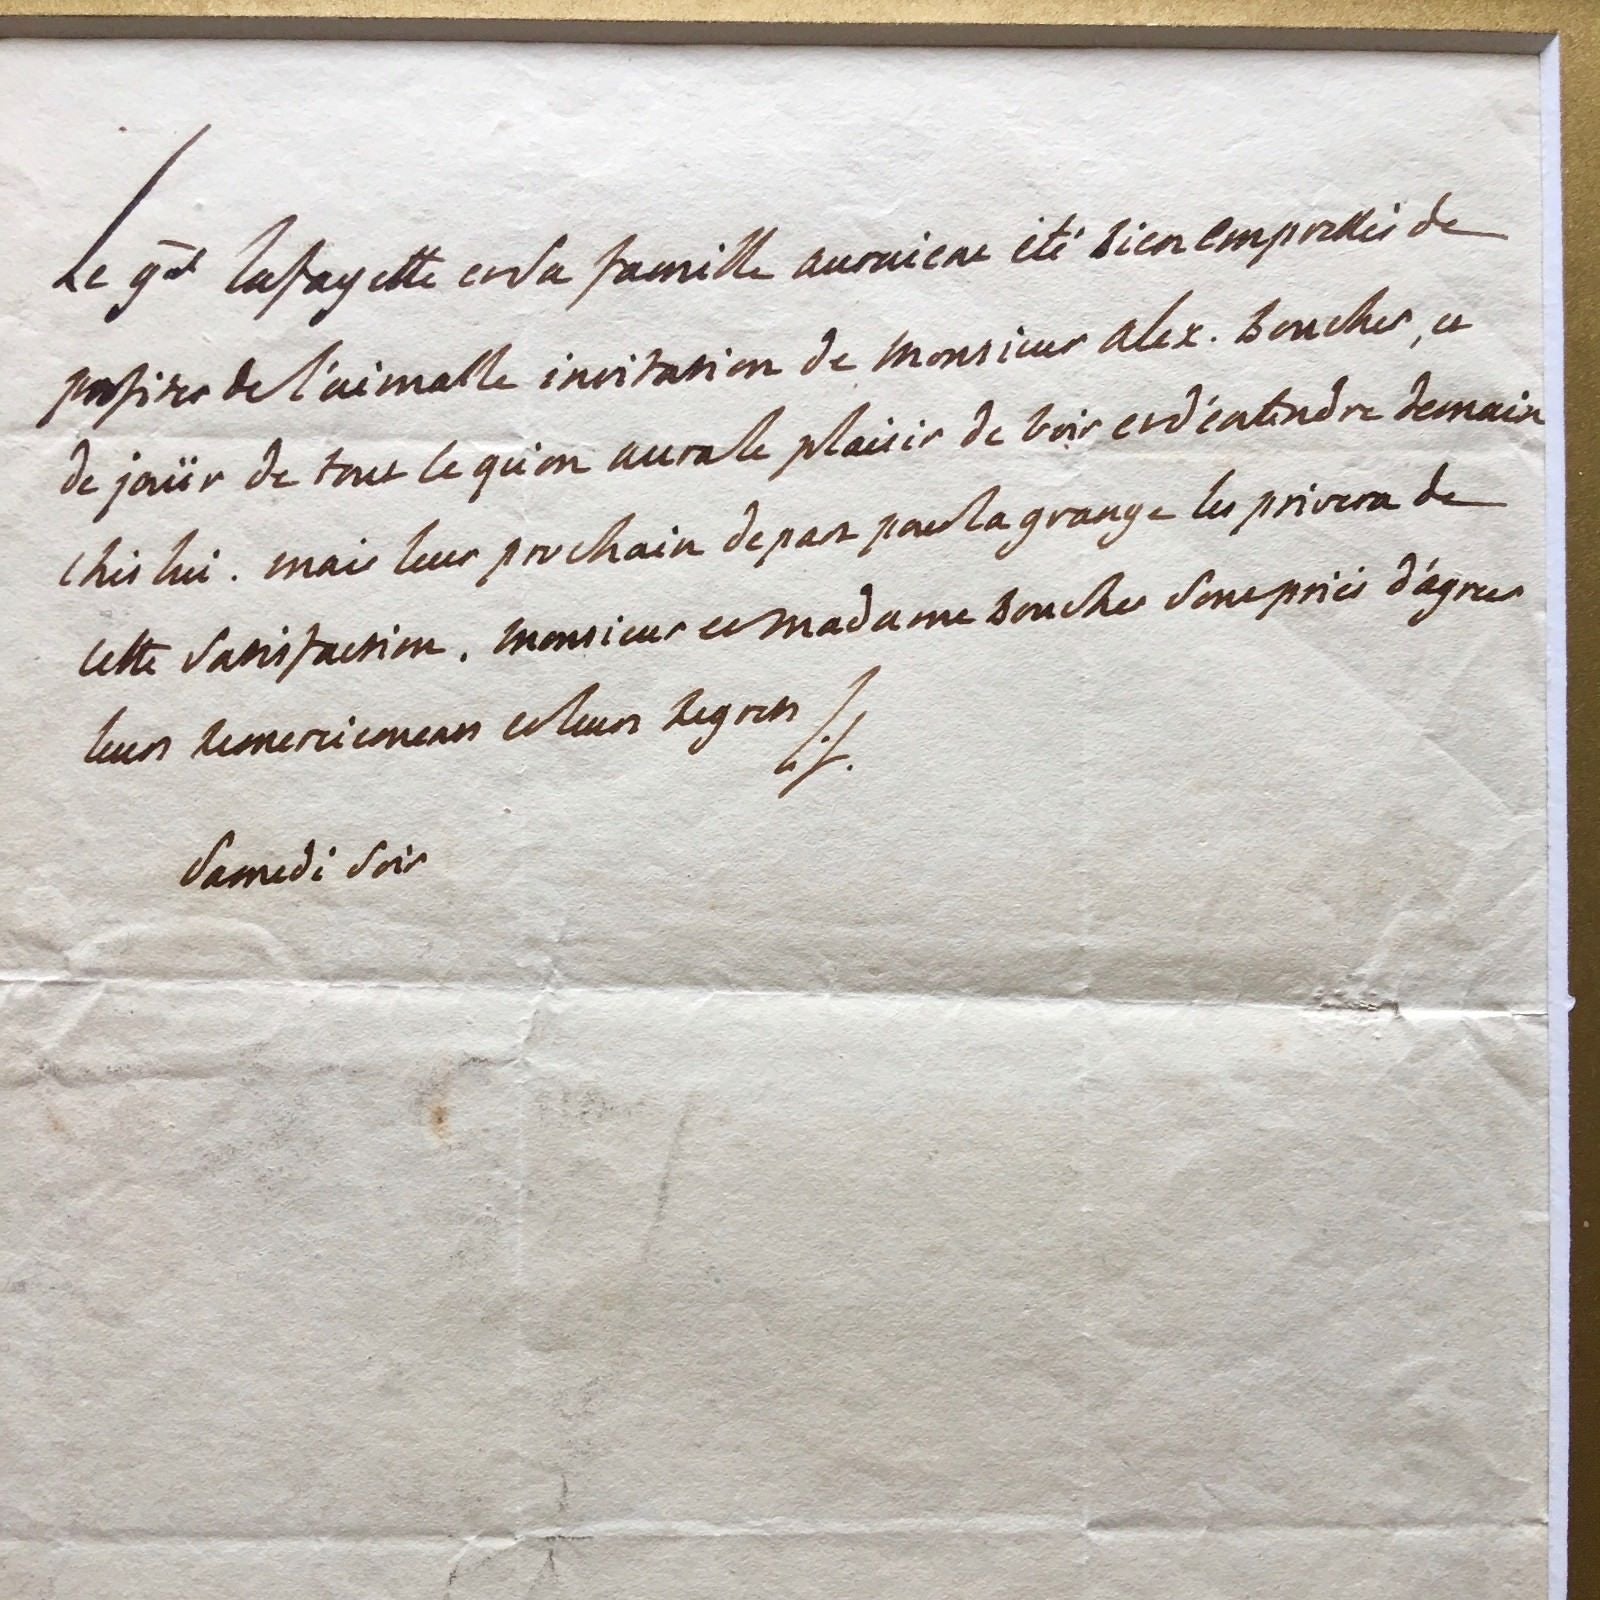 Le g^al lafayette et sa famille auraient été bien empressés de
profiter de l'aimable invitation de monsieur alex. Boucher, et
de joüir de tout ce qu'on aura le plaisir de voir et d'entendre demain
chés lui. mais leur prochain depart pour la grange les privera de
cette satisfaction. monsieur et madame Boucher sont priés d'agréer
leurs remerciemens et leurs regrets
Samedi soir